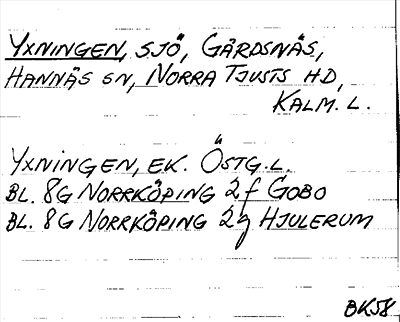 YXNINGEN, SJÖ, GÅRDSNÄS,
HANNÄS SN, NORRA TJUSTS HD,
KALM. L.
YXNINGEN, EK. ÖSTG. L.
BL. 8G NORRKÖPING 2f GOBO
BL. 8G NORRKÖPING 2g HJULERUM
BK58